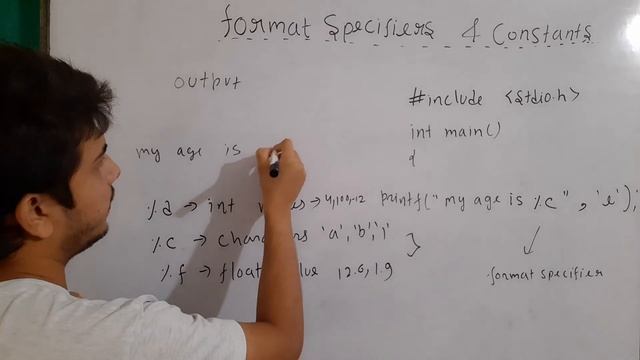 format Specifiers & Constants
output
#include <stdio.h>
int main()
{
my age is
%d → int → 4,100,-12
printf("my age is %c" , 'e');
%c → characters 'a','b',')'
%f → float value 12.6, 1.9
format specifier